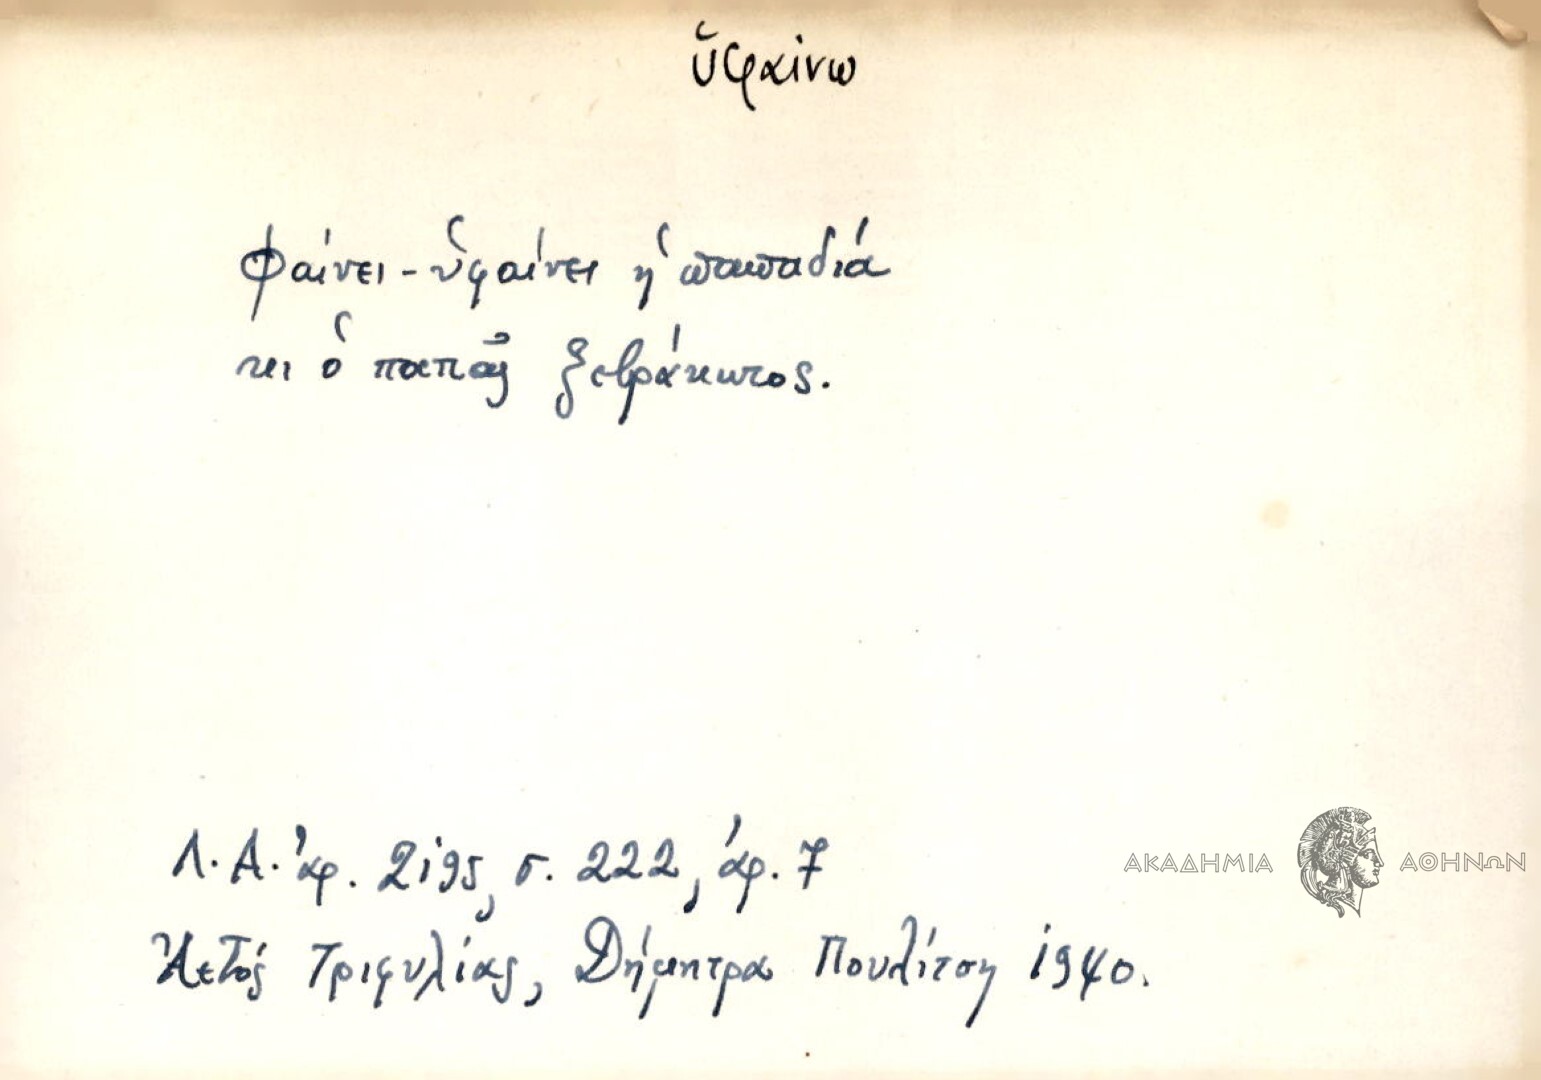 ὑφαίνω
Φαίνει - ὑφαίνει ἡ παπαδιά
κι ὁ παπᾶς ξεβράκωτος.
Λ. Α. ἀρ. 2195, σ. 222, ἀρ. 7
ΑΚΑΔΗΜΙΑ ΑΘΗΝΩΝ
Ἀετός Τριφυλίας, Δήμητρα Πουλίτση 1940.